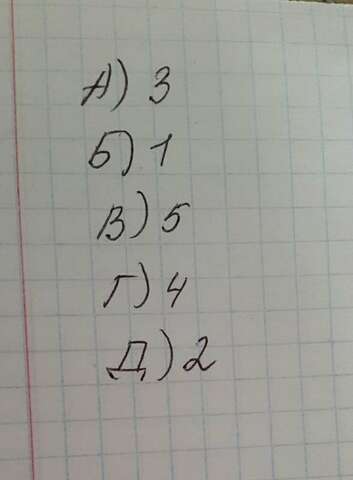 А) 3
Б) 1
В) 5
Г) 4
Д) 2